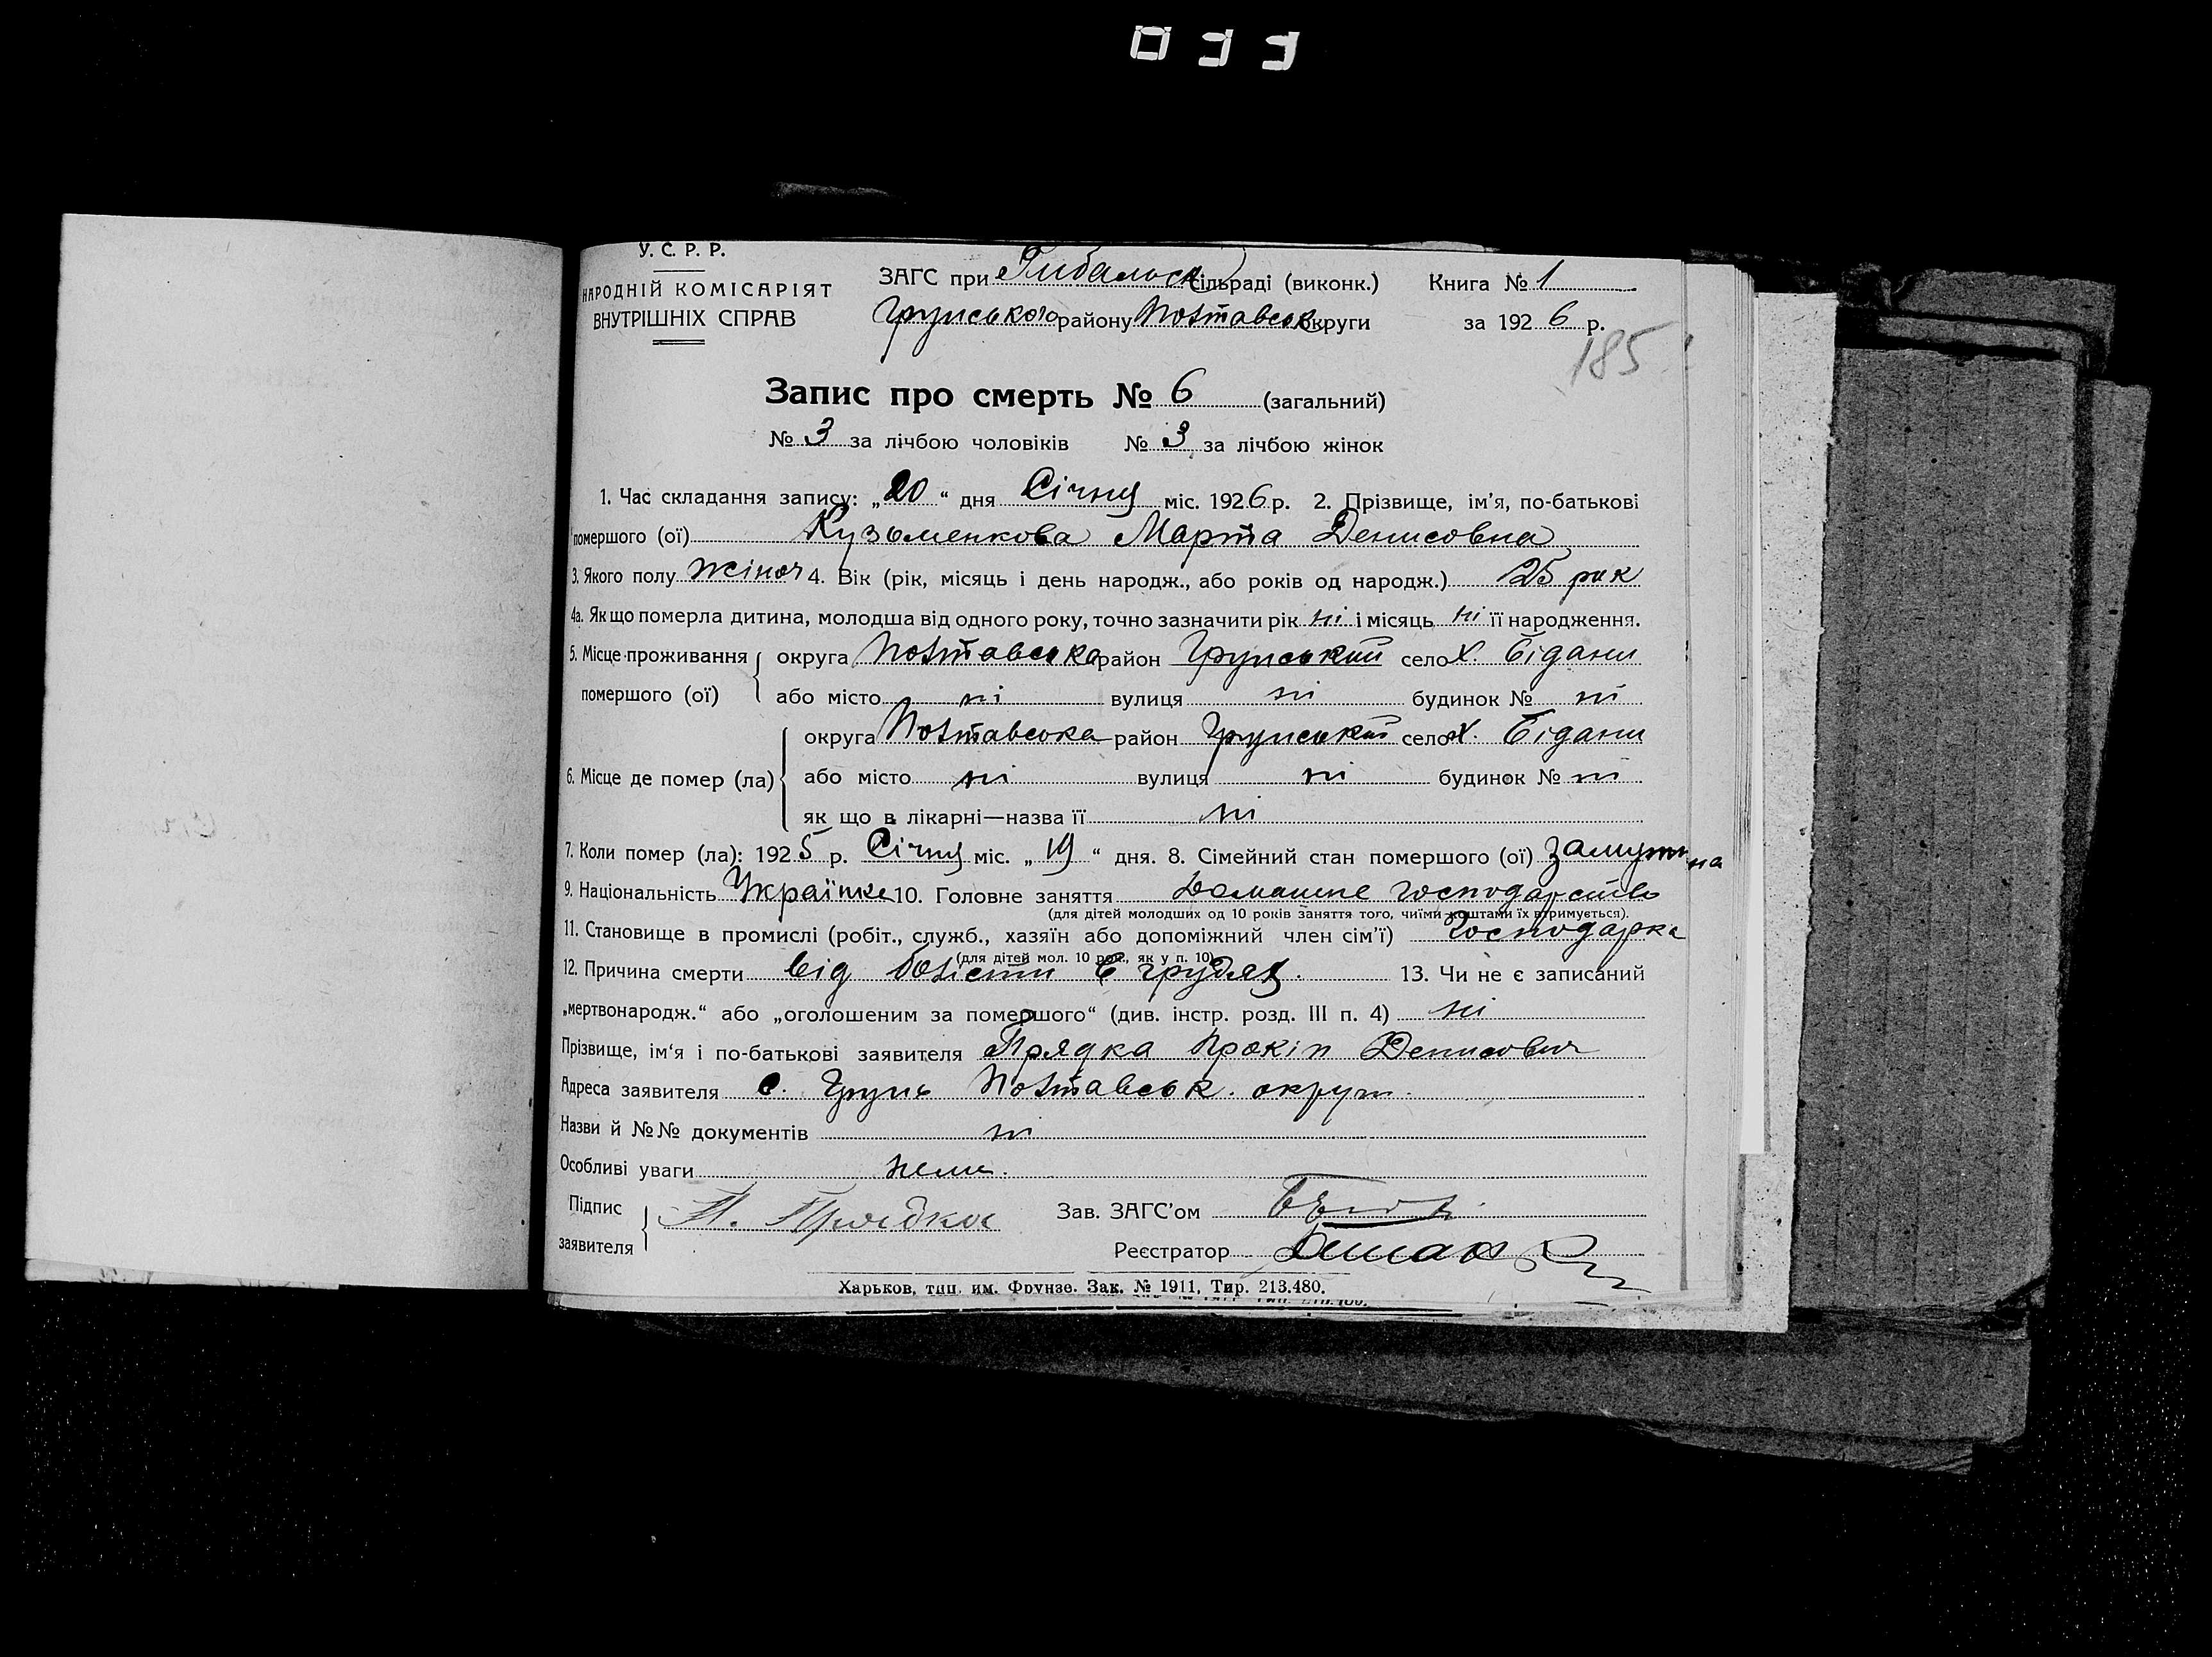 033
У. С. Р. Р.
НАРОДНІЙ КОМІСАРІЯТ
ВНУТРІШНІХ СПРАВ
ЗАГС при Рибальск сільраді (виконк.) Книга № 1
Грунського району Полтавськ округи за 1926 р.
185
Запис про смерть № 6 (загальний)
№ 3 за лічбою чоловіків № 3 за лічбою жінок
1. Час складання запису: „20“ дня Січня міс. 1926 р. 2. Прізвище, ім'я, по-батькові
помершого (ої) Кузьменкова Марта Денисовна
3. Якого полу жіноч 4. Вік (рік, місяць і день народж., або років од народж.) 25 рок
4а. Як що померла дитина, молодша від одного року, точно зазначити рік ні і місяць ні її народження.
5. Місце проживання округа Полтавська район Грунський село х. Бідани
помершого (ої) або місто ні вулиця ні будинок № ні
округа Полтавська район Грунський село х. Бідани
6. Місце де помер (ла) або місто ні вулиця ні будинок № ні
як що в лікарні—назва її ні
7. Коли помер (ла): 1925 р. Січня міс. „19“ дня. 8. Сімейний стан помершого (ої) Замужна
9. Національність Українка 10. Головне заняття Домашне господарство
(для дітей молодших од 10 років заняття того, чиїми коштами їх втримується).
11. Становище в промислі (робіт., служб., хазяїн або допоміжний член сім'ї) Господарка
(для дітей мол. 10 рок., як у п. 10)
12. Причина смерти від болісти в грудях. 13. Чи не є записаний
„мертвонародж.“ або „оголошеним за помершого“ (див. інстр. розд. III п. 4) ні
Прізвище, ім'я і по-батькові заявителя Прядка Прокіп Денисович
Адреса заявителя с. Грунь Полтавськ. округи
Назви й №№ документів ні
Особливі уваги нема.
Підпис
заявителя П. Прядка
Зав. ЗАГС'ом
Реєстратор
Харьков, тип. им. Фрунзе. Зак. № 1911, Тир. 213.480.